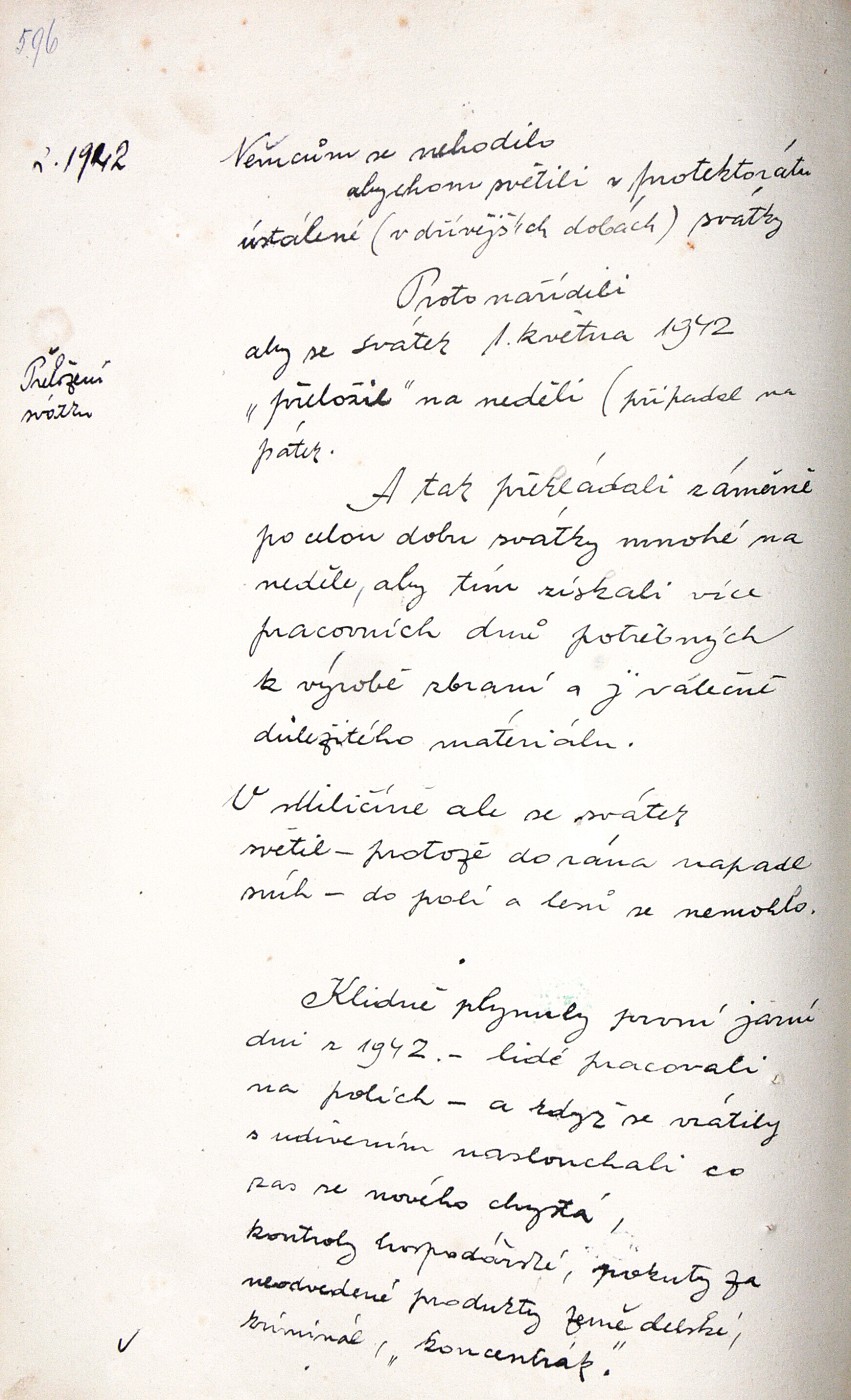 596
r. 1942
Němcům se nehodilo
abychom světili v protektorátu
ústálené (v dřívějších dobách) svátky
Proto nařídili
aby se svátek 1. května 1942
Přeložení
svátku
„přeložil" na neděli (připadal na
pátek.
A tak překládali záměrně
po celou dobu svátky mnohé na
neděle, aby tím získali více
pracovních dnů potřebných
k výrobě zbraní a j. válečně
důležitého materiálu.
V Miličíně ale se svátek
světil – protože do rána napadl
sníh – do polí a lesů se nemohlo.
Klidně plynuly první jarní
dni r 1942. – lidé pracovali
na polích – a když se vrátily
s udivením naslouchali co
zas se nového chystá,
kontroly hospodářské, pokuty za
neodvedené produkty zemědělské,
kriminál, „koncentrák."